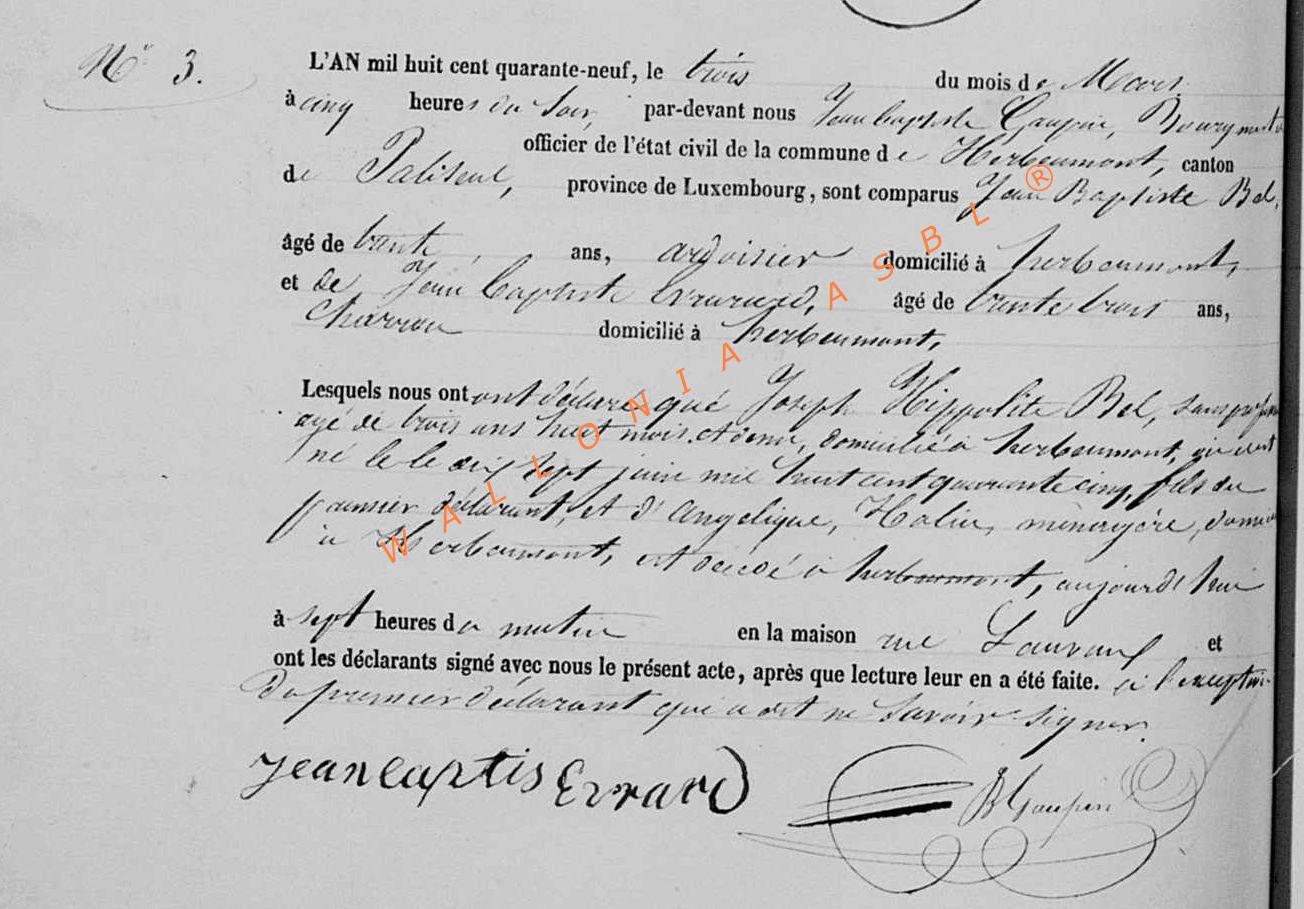 N° 3.
L'AN mil huit cent quarante-neuf, le trois du mois de Mars
à cinq heures du Soir, par-devant nous Jean baptiste Gaupin, Bourgmestre
officier de l'état civil de la commune de Herbeumont, canton
de Paliseul, province de Luxembourg, sont comparus Jean Baptiste Bel,
âgé de trente ans, ardoisier domicilié à herbeumont,
et de Jean baptiste Errard, âgé de trente trois ans,
Charron domicilié à herbeumont,
Lesquels nous ont ont déclaré que Joseph Hippolite Bel, sans
agé de trois ans huit mois et demi, domicilié à herbeumont,
né le le dix sept juin mil huit cent quarante cinq, fils du
premier déclarant, et d'Angelique, ménagère,
à Herbeumont, est décédé à herbeumont, aujourd'hui
à sept heures du matin en la maison rue et
ont les déclarants signé avec nous le présent acte, après que lecture leur en a été faite. à l'exception
du premier déclarant qui a dit ne Savoir Signer.
Jean baptis Errard
JB Gaupin
WALLONIA ASBL ®